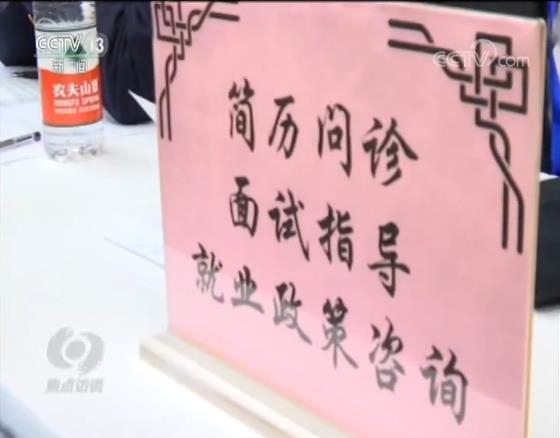 CCTV 13
新闻
CCTV.com
农夫山泉
NONGFU SPRING
简历问诊
面试指导
就业政策咨询
焦点访谈